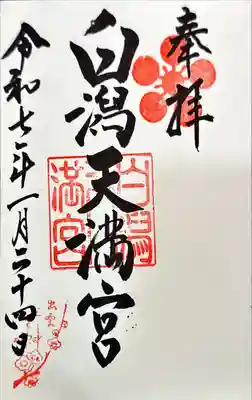 奉拝
白潟天満宮
令和七年一月二十四日
白潟
満宮
出雲